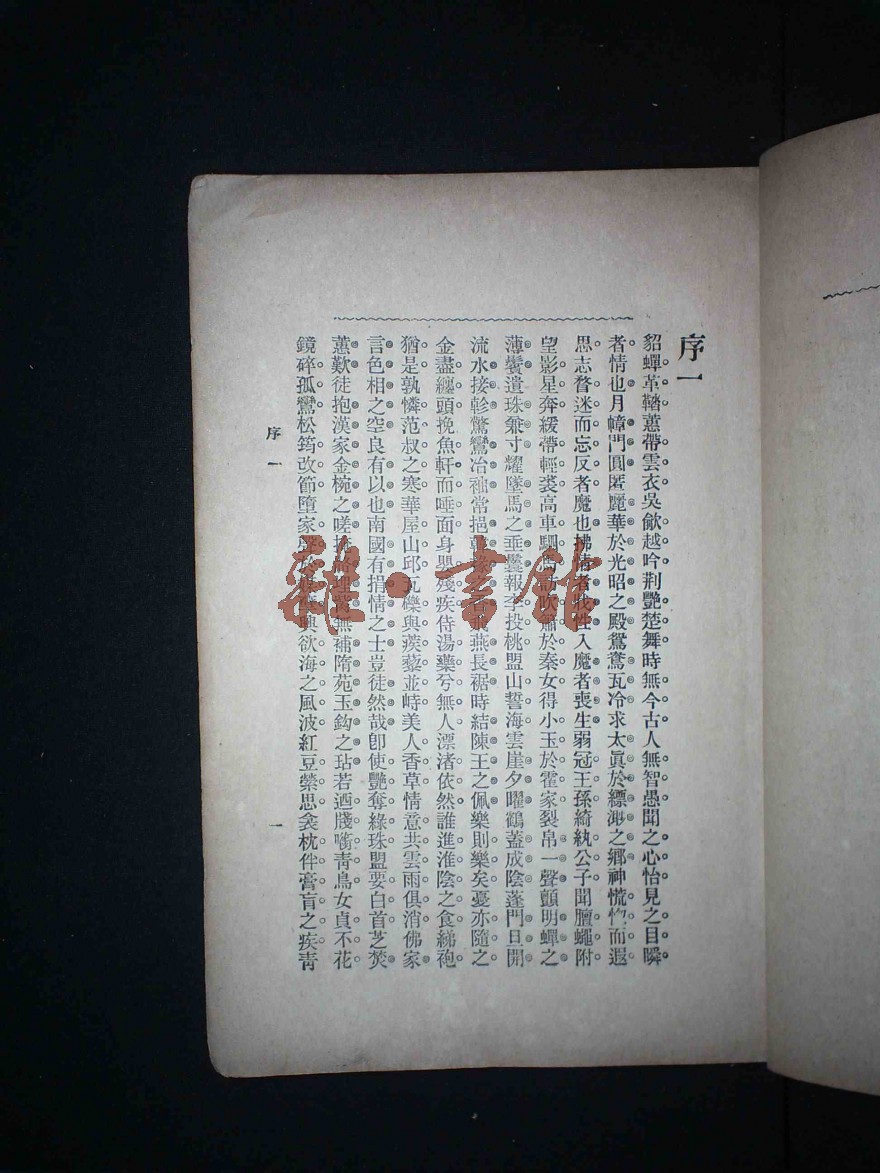 序一
貂蟬革鞜蕙帶雲衣吳歈越吟荆艷楚舞時無今古人無智愚聞之心怡見之目瞬
者情也月幛門圓匿麗華於光昭之殿鴛鴦瓦冷求太眞於縹渺之鄉神慌惚而遐
思志瞀迷而忘反者魔也拂情者戕性入魔者喪生弱冠王孫綺紈公子聞膻蠅附
望影星奔緩帶輕裘高車駟馬訪吹簫於秦女得小玉於霍家裂帛一聲顫明蟬之
薄鬢遺珠兼寸耀墜馬之垂鬟報李投桃盟山誓海雲崖夕曜鶴蓋成陰蓬門日開
流水接軫驚鸞冶袖當挹之香燕長裾時結陳王之佩樂則樂矣憂亦隨之
金盡纏頭挽魚軒而唾面身嬰殘疾侍湯藥兮無人漂渚依然誰進淮陰之食綈袍
猶是孰憐范叔之寒華屋山邱瓦櫟與蒺藜並峙美人香草情意共雲雨俱消佛家
言色相之空良有以也南國有捐情之士豈徒然哉卽使艷奪綠珠盟要白首芝焚
蕙歎徒抱漢家金椀之嗟無補隋苑玉鈎之玷若迺牋衝青鳥女貞不花
鏡碎孤鸞松筠改節墮家聲與欲海之風波紅豆縈思衾枕伴膏肓之疾靑
序一
一
雜·書館